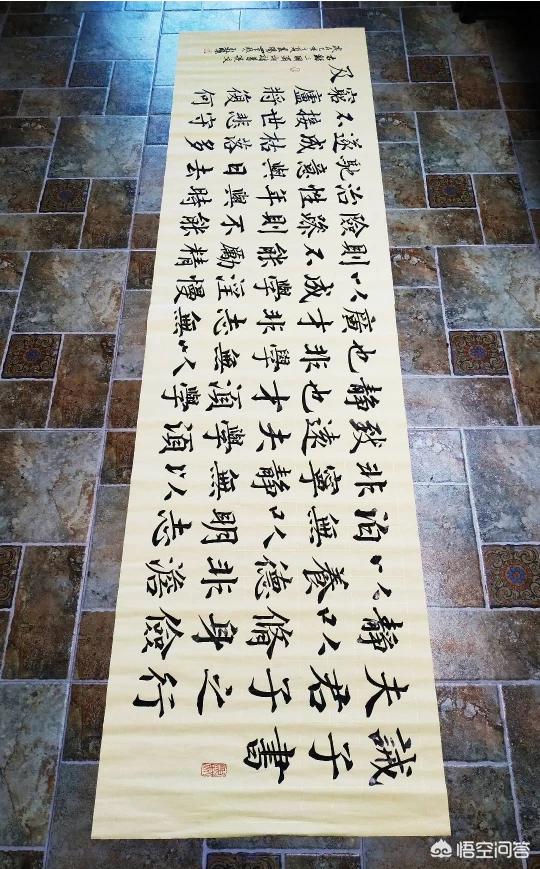 誡子書
夫君子之行
靜以脩身儉
以養德非澹
泊無以明志
非寧靜無以
致遠夫學須
靜也才須學
也非學無以
廣才非志無
以成學淫慢
則不能勵精
險躁則不能
治性年與時
馳意與日去
遂成枯落多
不接世悲守
窮廬將復何
及
悟空问答